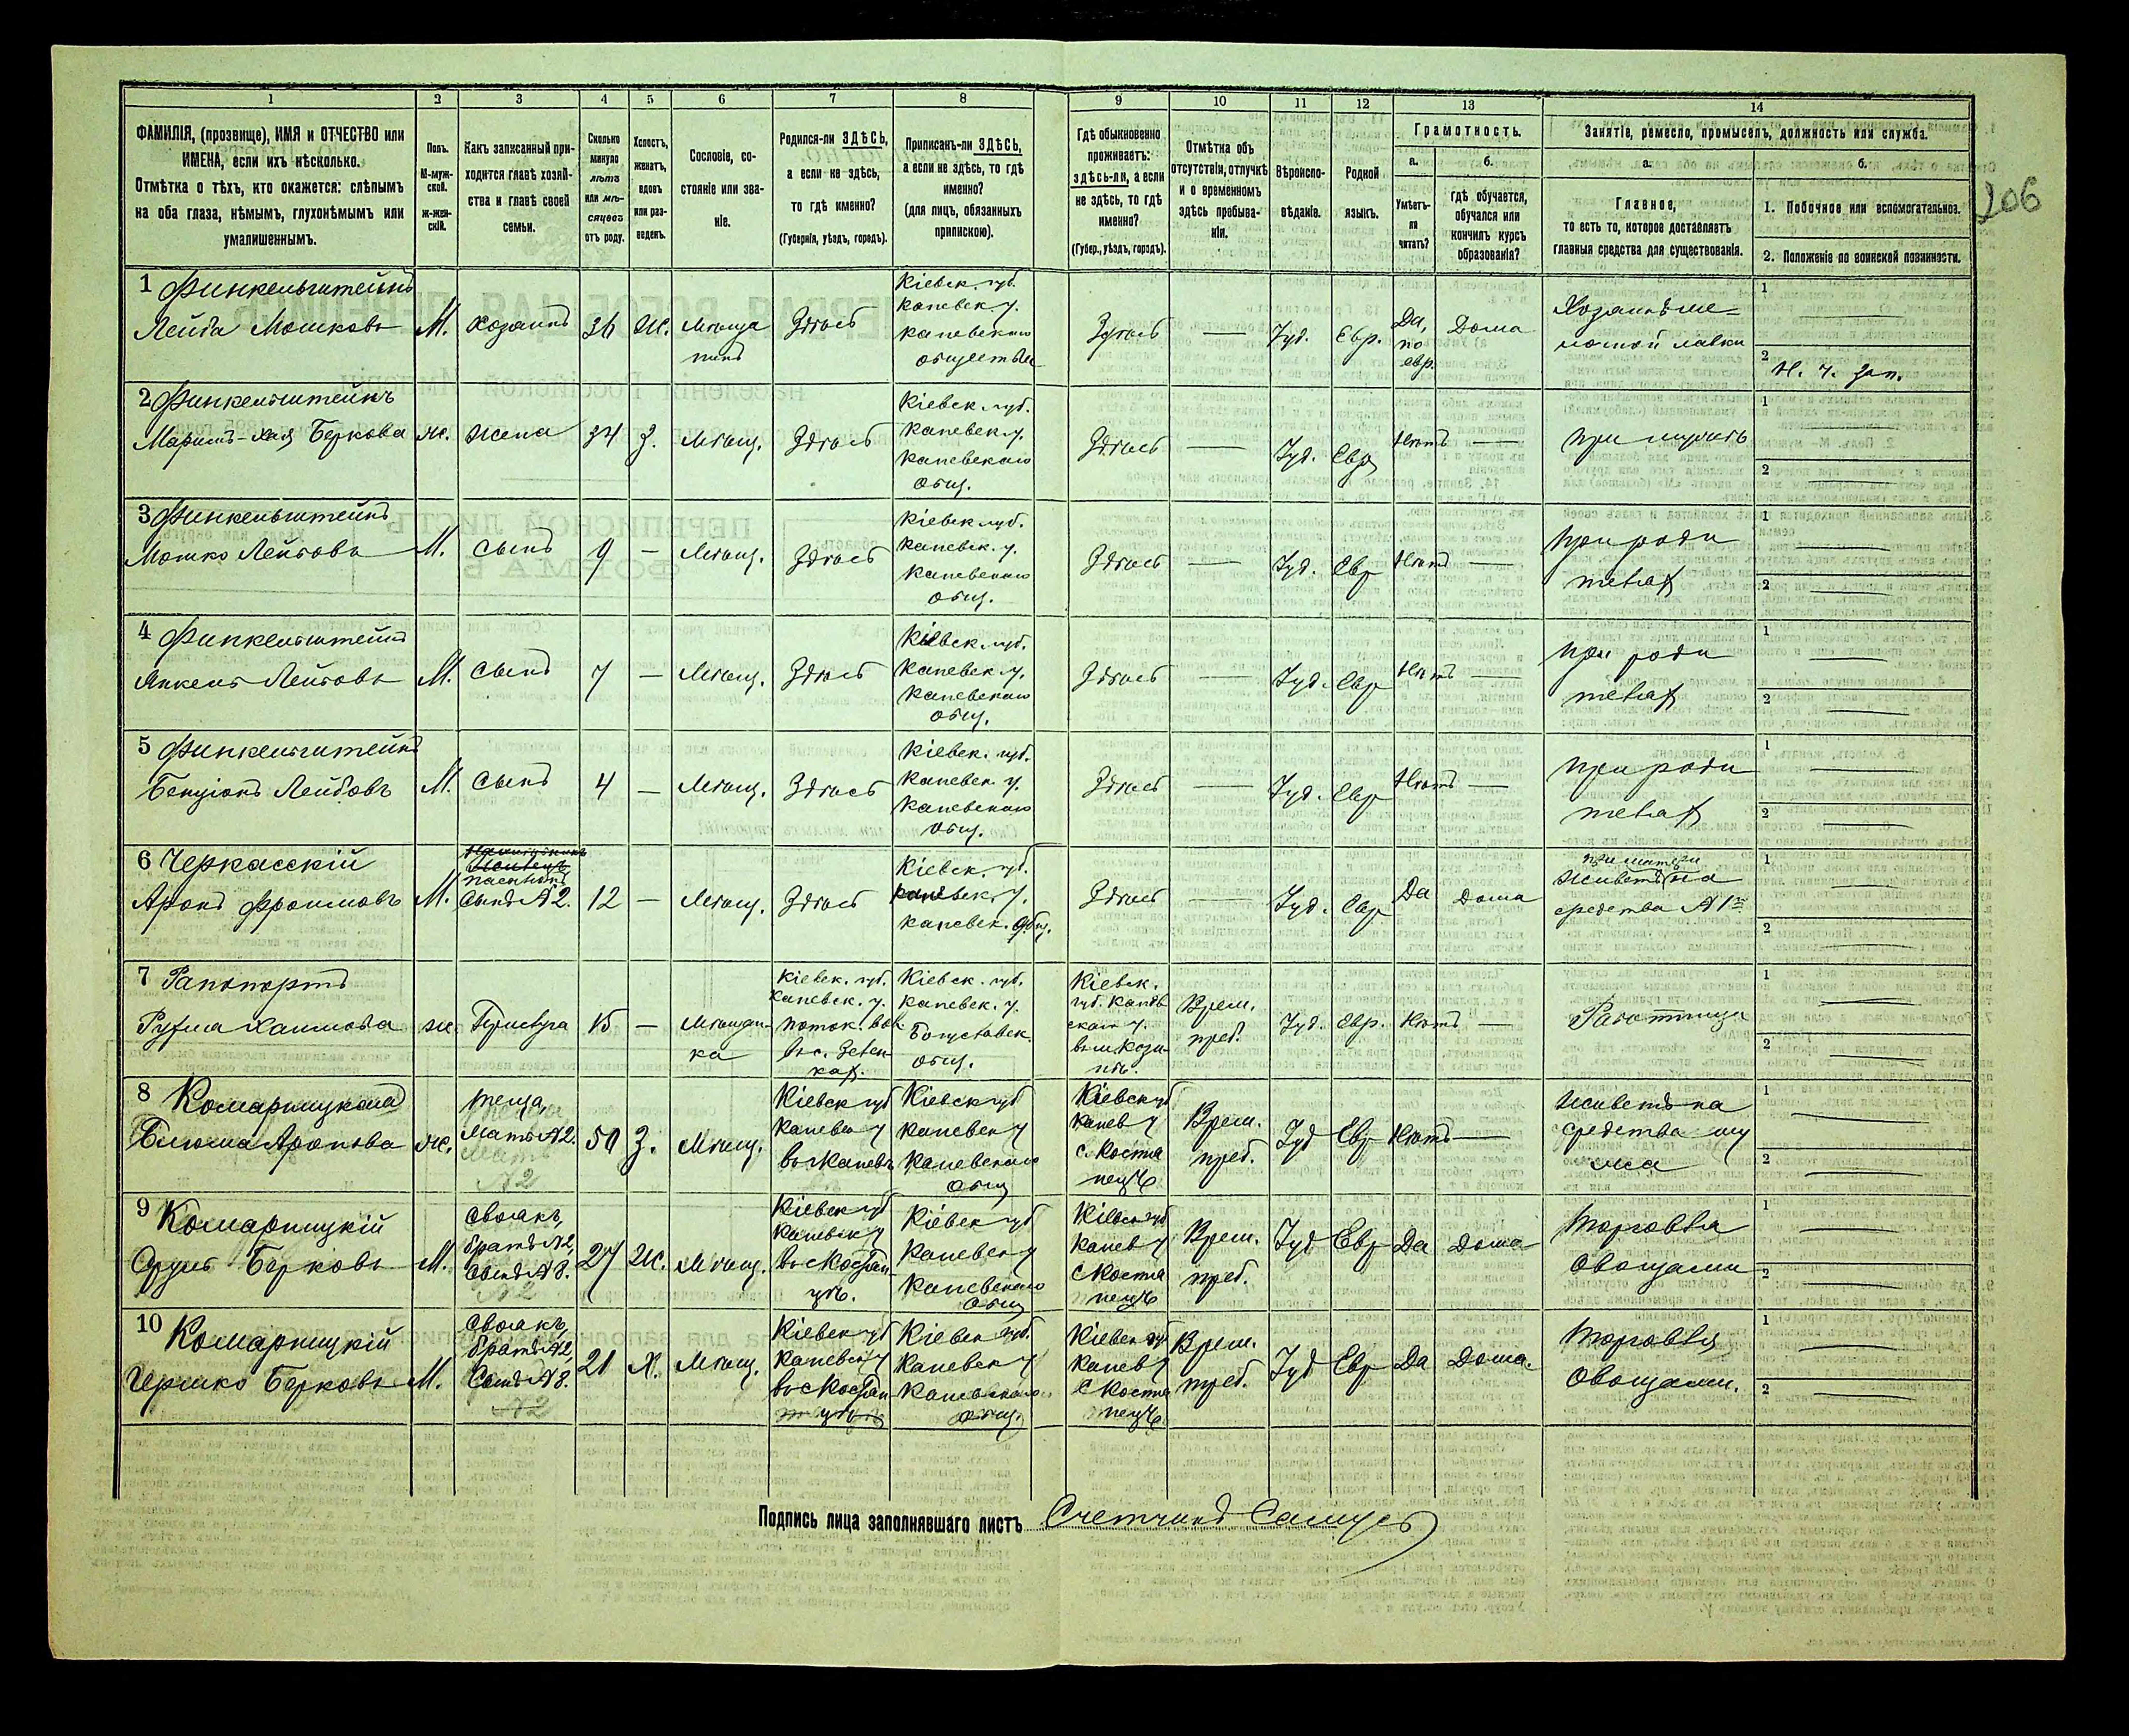 206
1 2 3 4 5 6 7 8 9 10 11 12 13 14
ФАМИЛІЯ, (прозвище), ИМЯ и ОТЧЕСТВО или
ИМЕНА, если ихъ нѣсколько.
Отмѣтка о тѣхъ, кто окажется: слѣпымъ
на оба глаза, нѣмымъ, глухонѣмымъ или
умалишеннымъ.
Полъ.
М-муж-
ской.
ж-жен-
скій.
Какъ записанный при-
ходится главѣ хозяй-
ства и главѣ своей
семьи.
Сколько
минуло
лѣтъ
или мѣ-
сяцевъ
отъ роду.
Холостъ,
женатъ,
вдовъ
или раз-
веденъ.
Сословіе, со-
стояніе или зва-
ніе.
Родился-ли ЗДѢСЬ,
а если не здѣсь,
то гдѣ именно?
(Губернія, уѣздъ, городъ).
Приписанъ-ли ЗДѢСЬ,
а если не здѣсь, то гдѣ
именно?
(для лицъ, обязанныхъ
припискою).
Гдѣ обыкновенно
проживаетъ:
здѣсь-ли, а если
не здѣсь, то гдѣ
именно?
(Губер., уѣздъ, городъ).
Отмѣтка объ
отсутствіи, отлучкѣ
и о временномъ
здѣсь пребыва-
ніи.
Вѣроиспо-
вѣданіе.
Родной
языкъ.
Грамотность.
а.
Умѣетъ-
ли
читать?
б.
гдѣ обучается,
обучался или
кончилъ курсъ
образованія?
Занятіе, ремесло, промыселъ, должность или служба.
а.
Главное,
то есть то, которое доставляетъ
главныя средства для существованія.
б.
1. Побочное или вспомогательное.
2. Положеніе по воинской повинности.
1 Финкельштейнъ
Лейба Мошковъ
М.
хозяинъ
36
Ж.
Мѣща
нинъ
Здѣсь
Кіевск. губ.
Каневск. у.
каневскаго
общества
Здѣсь
—
Іуд.
Евр.
Да,
по
евр.
Дома
Хозяинъ ме
лочной лавки
1 —
2 Н. ч. зап.
2 Финкельштейнъ
Маримъ-Хая Беркова
ж.
жена
34
З.
Мѣщ.
Здѣсь
Кіевск. губ.
Каневск. у.
Каневскаго
общ.
Здѣсь
—
Іуд.
Евр
Нѣтъ
—
При мужѣ
1 —
2 —
3 Финкельштейнъ
Мошко Лейбовъ
М.
сынъ
9
—
Мѣщ.
Здѣсь
Кіевск. губ.
Каневск. у.
Каневскаго
общ.
Здѣсь
—
Іуд.
Евр
Нѣтъ
—
При роди
теляхъ
1 —
2 —
4 Финкельштейнъ
Янкель Лейбовъ
М.
сынъ
7
—
Мѣщ.
Здѣсь
Кіевск. губ.
Каневск. у.
Каневскаго
общ.
Здѣсь
—
Іуд.
Евр
Нѣтъ
—
При роди
теляхъ
1 —
2 —
5 Финкельштейнъ
Бенціонъ Лейбовъ
М.
сынъ
4
—
Мѣщ.
Здѣсь
Кіевск. губ.
Каневск. у.
Каневскаго
общ.
Здѣсь
—
Іуд.
Евр
Нѣтъ
—
При роди
теляхъ
1 —
2 —
6 Черкасскій
Аронъ Фроимовъ
М.
пасынокъ
Сынъ №2.
12
—
Мѣщ.
Здѣсь
Кіевск. губ.
Каневск. у.
каневск. общ.
Здѣсь
—
Іуд.
Евр
Да
Дома
при матери
Живетъ на
средства №1
1 —
2 —
7 Рапопортъ
Рухма Хаимова
ж.
Прислуга
15
—
Мѣщан-
ка
Кіевск. губ.
Каневск. у.
Поток. вол
въ с. Зелен-
кахъ.
Кіевск. губ.
Каневск. у.
Богуславск.
общ.
Кіевск.
губ. Канев
скаго у.
въ м. Кози-
нѣ.
Врем.
преб.
Іуд.
Евр.
Нѣтъ
—
Работница
1 —
2 —
8 Комарницкая
Блюма Аронова
ж.
теща,
Мать №2.
№2
50
З.
Мѣщ.
Кіевск губ
Каневск у
въ г Каневѣ
Кіевск губ
Каневск у
Каневскаго
общ
Кіевск губ
Канев у
с. Костя
нецъ
Врем.
преб.
Іуд
Евр
Нѣтъ
—
Живетъ на
средства му
жа
1 —
2 —
9 Комарницкій
Сруль Берковъ
М.
своякъ,
братъ №2,
Сынъ №8.
№2
27
Ж.
Мѣщ.
Кіевск губ
Каневск у
въ с Костян
цѣ.
Кіевск губ
Каневск у
Каневскаго
общ
Кіевск губ
Канев у
с Костя
нецъ
Врем.
преб.
Іуд
Евр
Да
Дома
Торговля
овощами
1 —
2 —
10 Комарницкій
Гершко Берковъ
М.
своякъ,
братъ №2,
Сынъ №8.
№2
21
Х.
Мѣщ.
Кіевск губ
Каневск у
въ с Костян
цѣ
Кіевск губ.
Каневск у
Каневскаго
общ.
Кіевск губ
Канев у
с Костя
нецъ
Врем.
преб.
Іуд
Евр
Да
Дома.
Торговля
овощами.
1 —
2 —
Подпись лица заполнявшаго листъ Счетчикъ Самусь